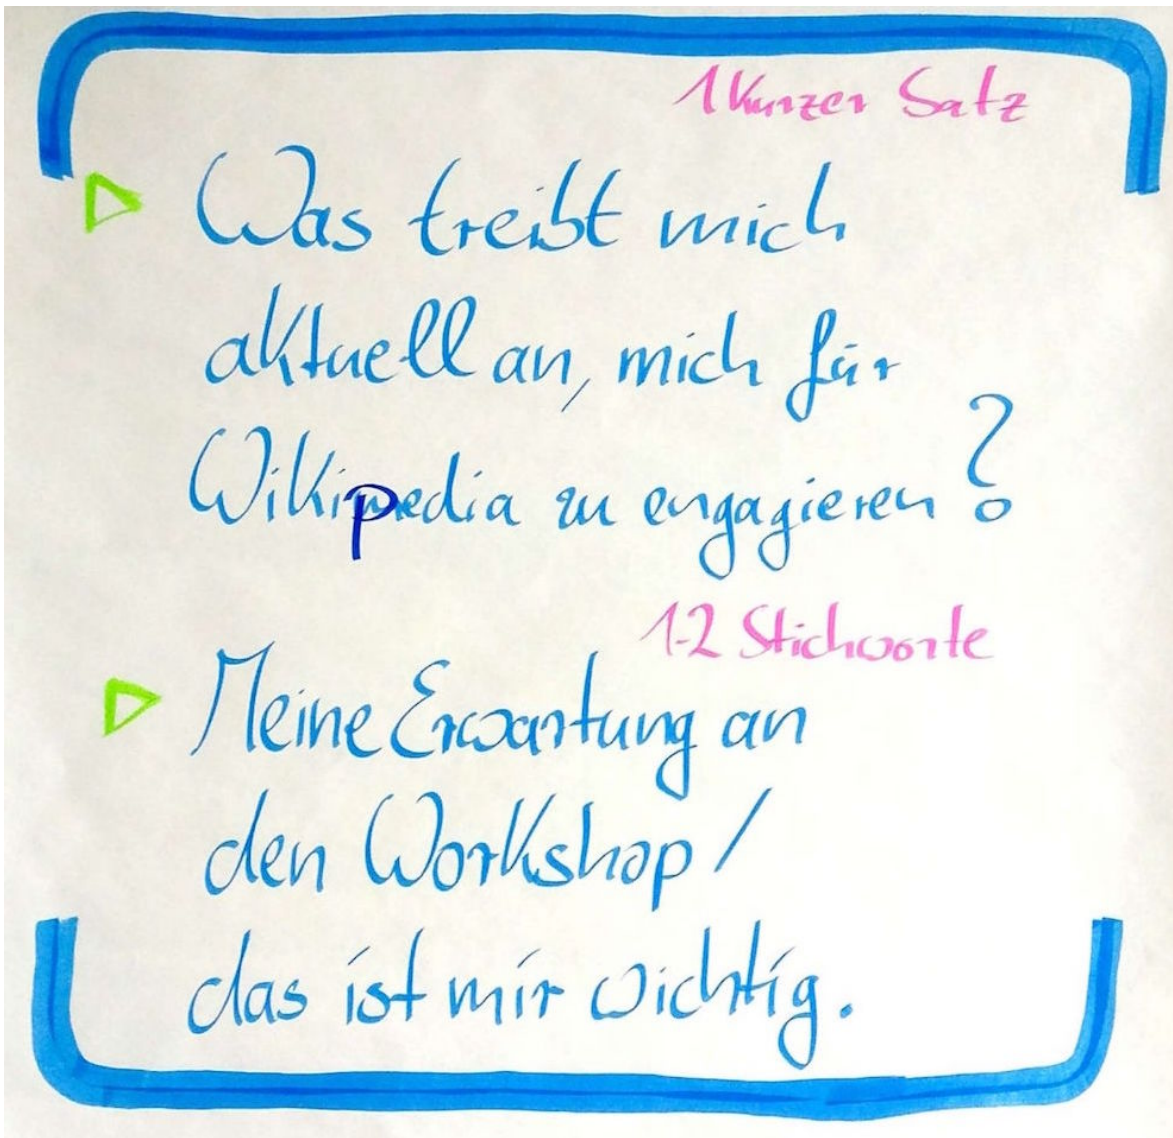 1 Kurzer Satz
Was treibt mich
aktuell an, mich für
Wikipedia zu engagieren?
1-2 Stichworte
Meine Erwartung an
den Workshop/
das ist mir wichtig.